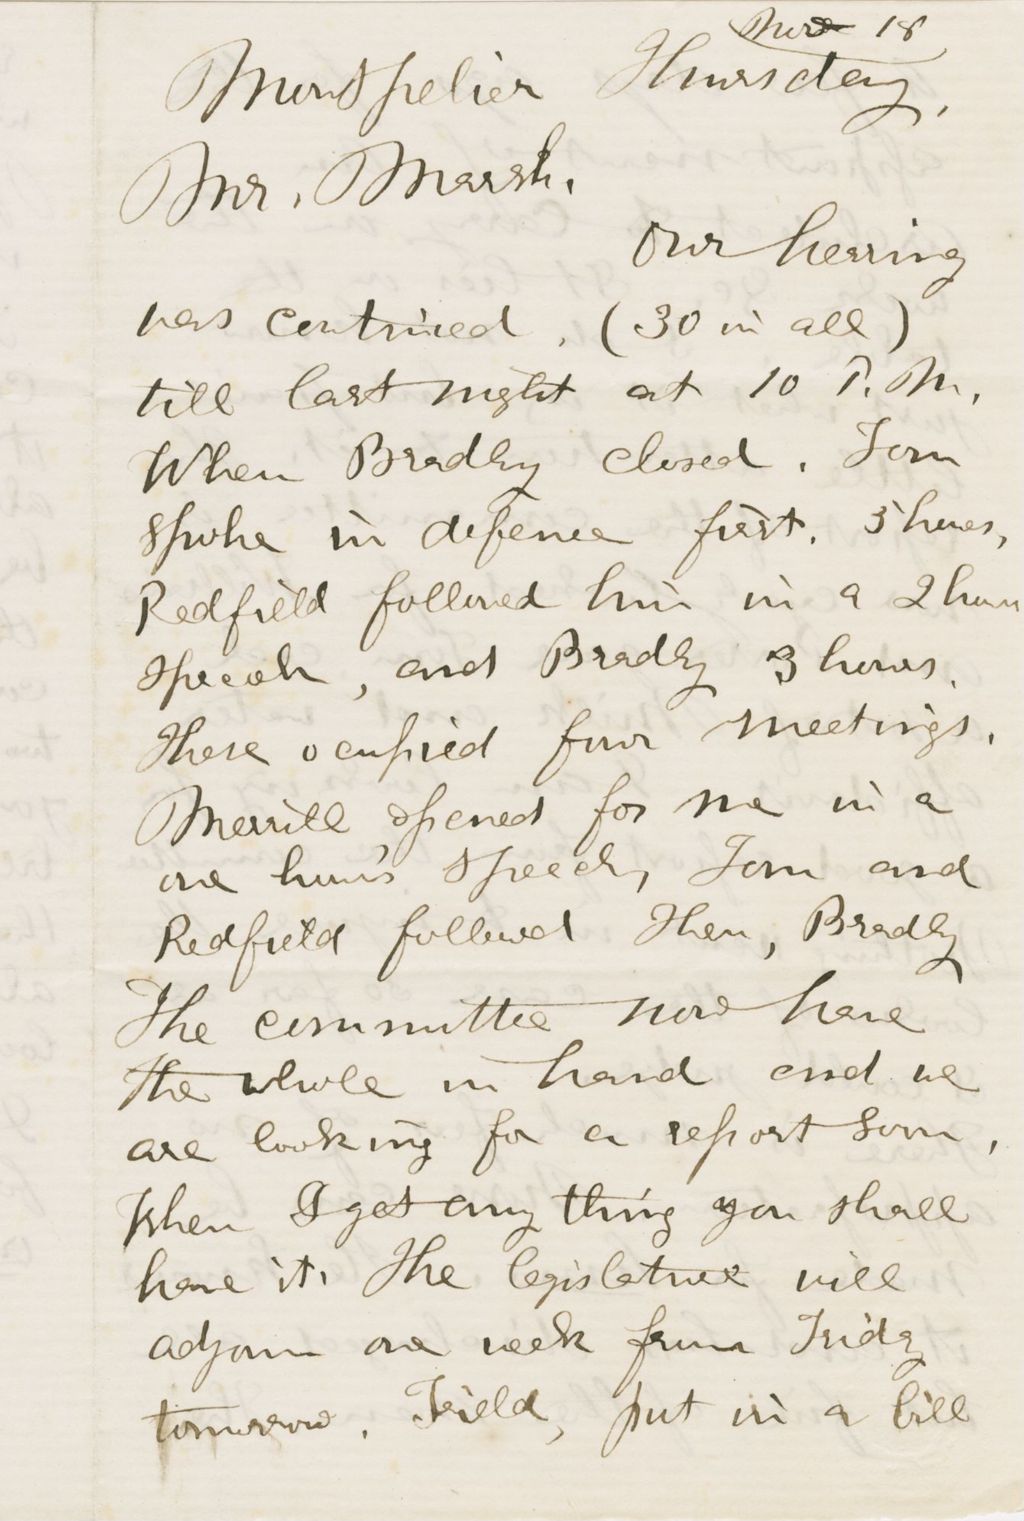 Nov 18
Montpelier Thursday,
Mr. Marsh.
Our herring
was contnued. (30 in all)
till last night at 10 P.M.
When Bradly closed. Torn
spoke in defence first. 5 hours,
Redfield followed him in a 2 hour
speech, and Bradly 3 hours.
These ocupied four meetings.
Merrill opened for me in a
one hour's speech, Torn and
Redfield followed then, Bradly
The committee now have
the whole in hand and we
are looking for a report soon,
When I get any thing you shall
have it. The legislature will
adjourn one week from Friday
tomorrow. Field, put in a bill